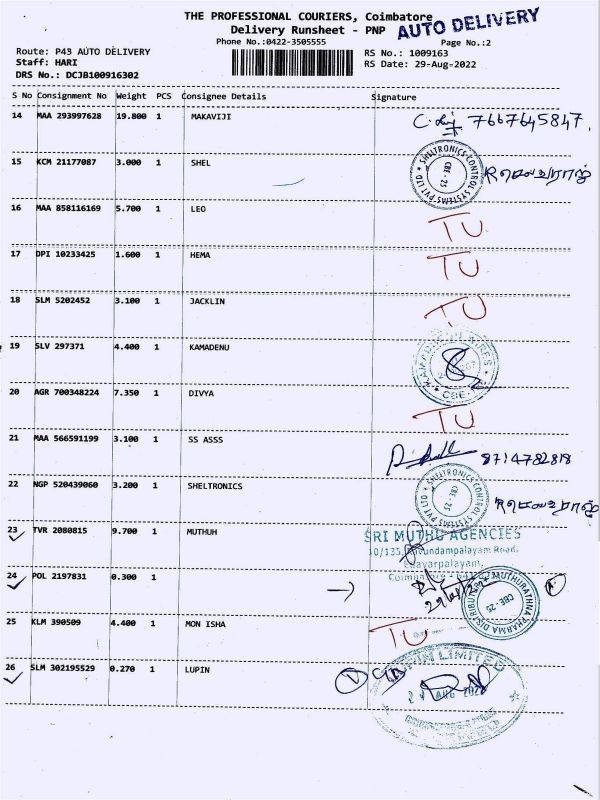 THE PROFESSIONAL COURIERS, Coimbatore
Delivery Runsheet - PNP
AUTO DELIVERY
Phone No.:0422-3505555
Page No.:2
Route: P43 AUTO DELIVERY
RS No.: 1009163
Staff: HARI
RS Date: 29-Aug-2022
DRS No.: DCJB100916302
S No Consignment No Weight PCS Consignee Details Signature
14 MAA 293997628 19.800 1 MAKAVIJI 7667645847.
15 KCM 21177087 3.000 1 SHEL
SHELTRONICS CONTROL SYSTEMS PVT LTD
CBE - 25
16 MAA 858116169 5.700 1 LEO TU
17 DPI 10233425 1.600 1 HEMA TU
18 SLM 5202452 3.100 1 JACKLIN TU
19 SLV 297371 4.400 1 KAMADENU
CBE
20 AGR 700348224 7.350 1 DIVYA TU
21 MAA 566591199 3.100 1 SS ASSS 8714782818
22 NGP 520439060 3.200 1 SHELTRONICS
SHELTRONICS CONTROL SYSTEMS PVT LTD
CBE - 25
23 TVR 2080815 9.700 1 MUTHUH
SRI MUTHU AGENCIES
24 POL 2197831 0.300 1
Coimbatore
MUTHURATHNA PHARMA DISTRIBUTORS
CBE-25
25 KLM 390509 4.400 1 MON ISHA TU
26 SLM 302195529 0.270 1 LUPIN
LUPIN LIMITED